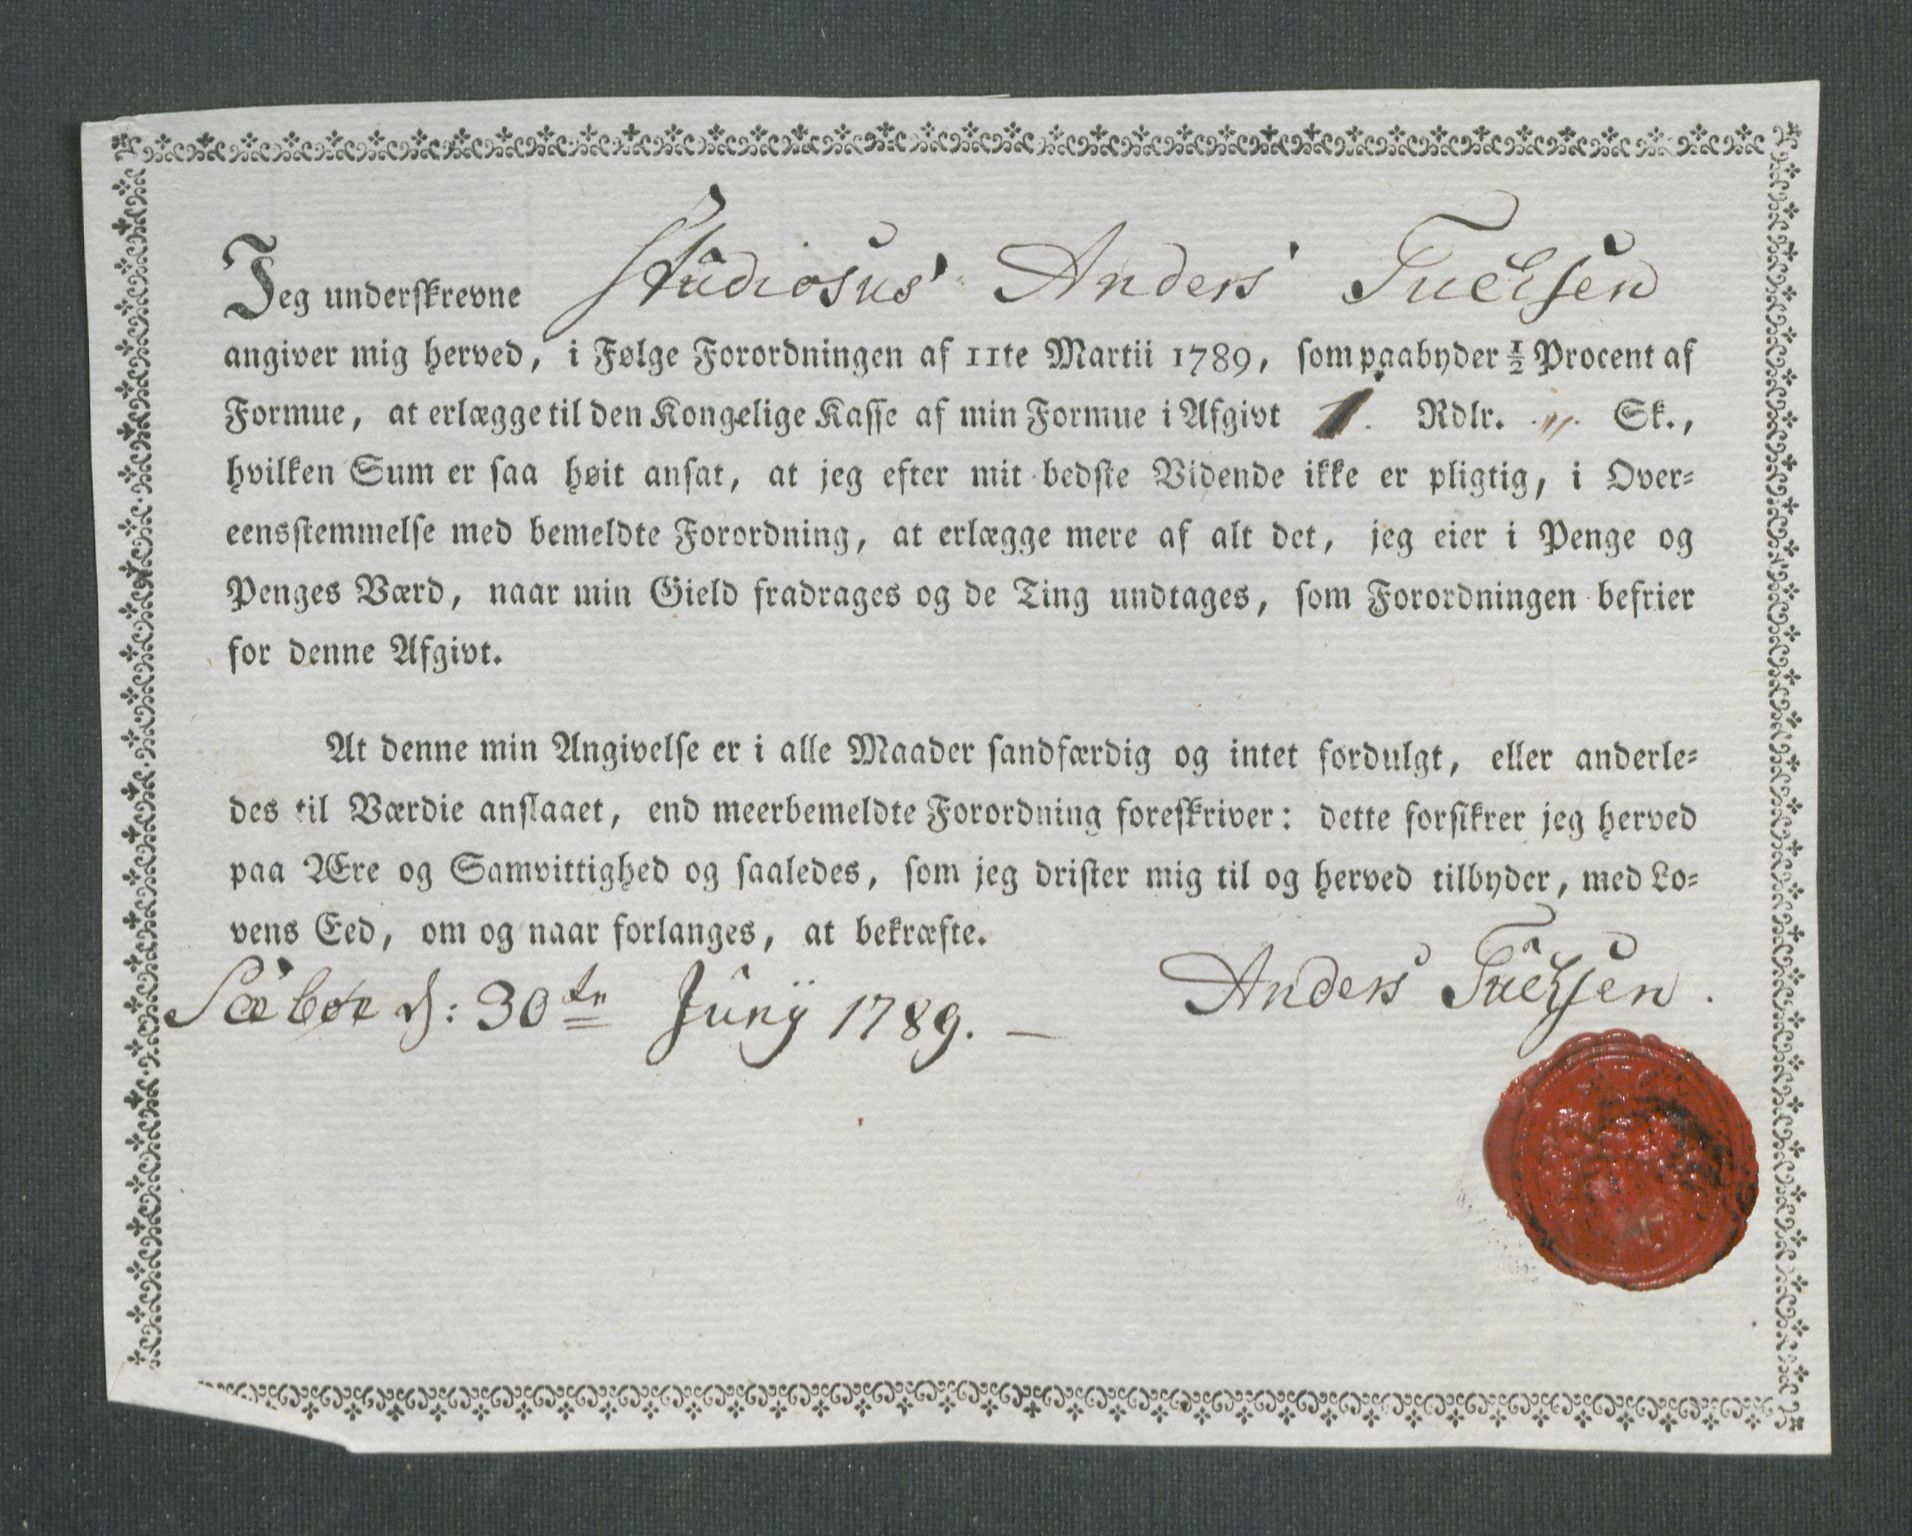 Jeg underskrevne Studiosus Anders Tuchsen
angiver mig herved, i Følge Forordningen af 11te Martii 1789, som paabyder ½ Procent af
Formue, at erlægge til den Kongelige Kasse af min Formue i Afgivt 1. Rdlr. „ Sk.,
hvilken Sum er saa høit ansat, at jeg efter mit bedste Vidende ikke er pligtig, i Over-
eensstemmelse med bemeldte Forordning, at erlægge mere af alt det, jeg eier i Penge og
Penges Værd, naar min Gield fradrages og de Ting undtages, som Forordningen befrier
for denne Afgivt.
At denne min Angivelse er i alle Maader sandfærdig og intet fordulgt, eller anderle-
des til Værdie anslaaet, end meerbemeldte Forordning foreskriver: dette forsikrer jeg herved
paa Ære og Samvittighed og saaledes, som jeg drister mig til og herved tilbyder, med Lo-
vens Eed, om og naar forlanges, at bekræfte.
Anders Tuchsen.
Sæbøe d: 30te Junij 1789. —